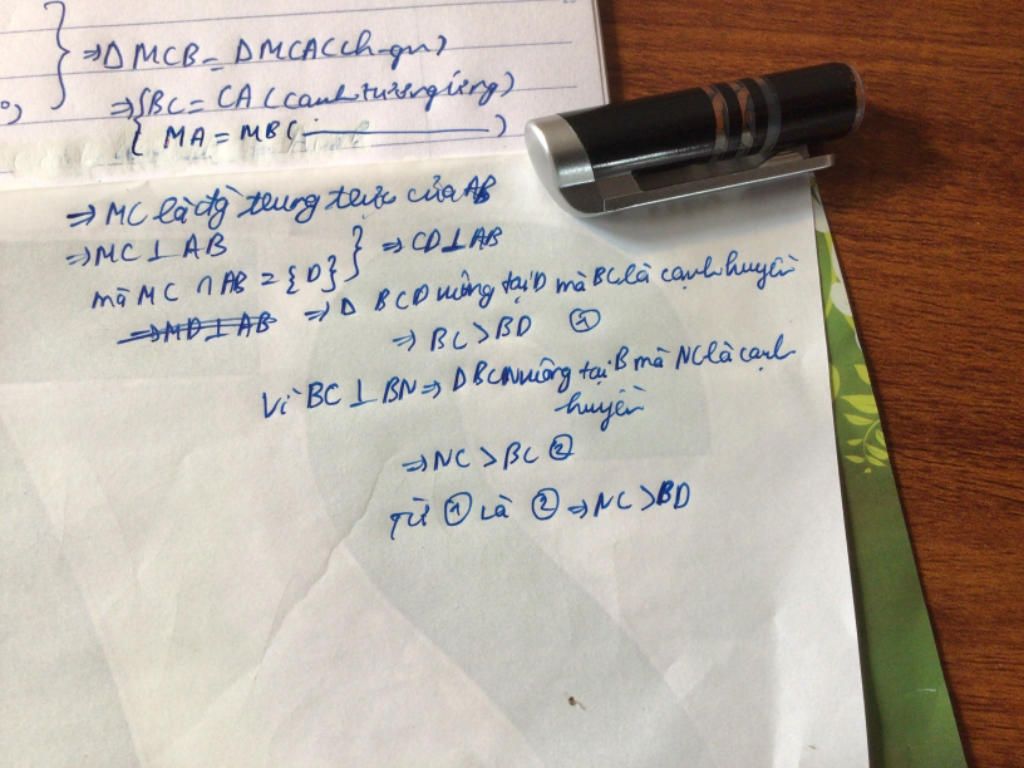 ⇒ Δ MCB = Δ MCA (ch-gn)
0,
⇒ { BC = CA (cạnh tương ứng)
{ MA = MB ( ———— )
⇒ MC là đg trung trực của AB
⇒ MC ⊥ AB
mà MC ∩ AB = {D} } ⇒ CD ⊥ AB
⇒ MD ⊥ AB ⇒ Δ BCD vuông tại D mà BC là cạnh huyền
⇒ BC > BD ①
Vì BC ⊥ BN ⇒ Δ BCN vuông tại B mà NC là cạnh
huyền
⇒ NC > BC ②
Từ ① và ② ⇒ NC > BD